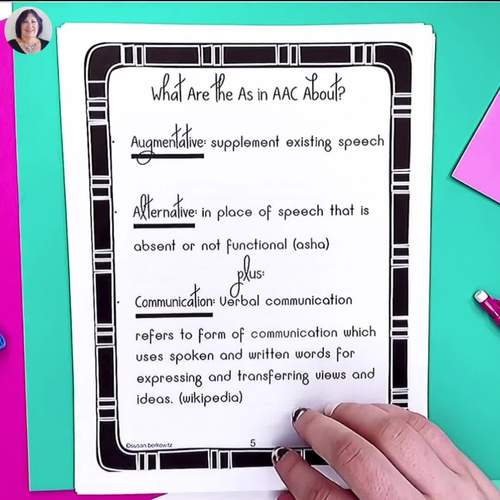 What Are the As in AAC About?
Augmentative: supplement existing speech
Alternative: in place of speech that is
absent or not functional (asha)
plus:
Communication: Verbal communication
refers to form of communication which
uses spoken and written words for
expressing and transferring views and
ideas. (wikipedia)
©susan berkowitz
5